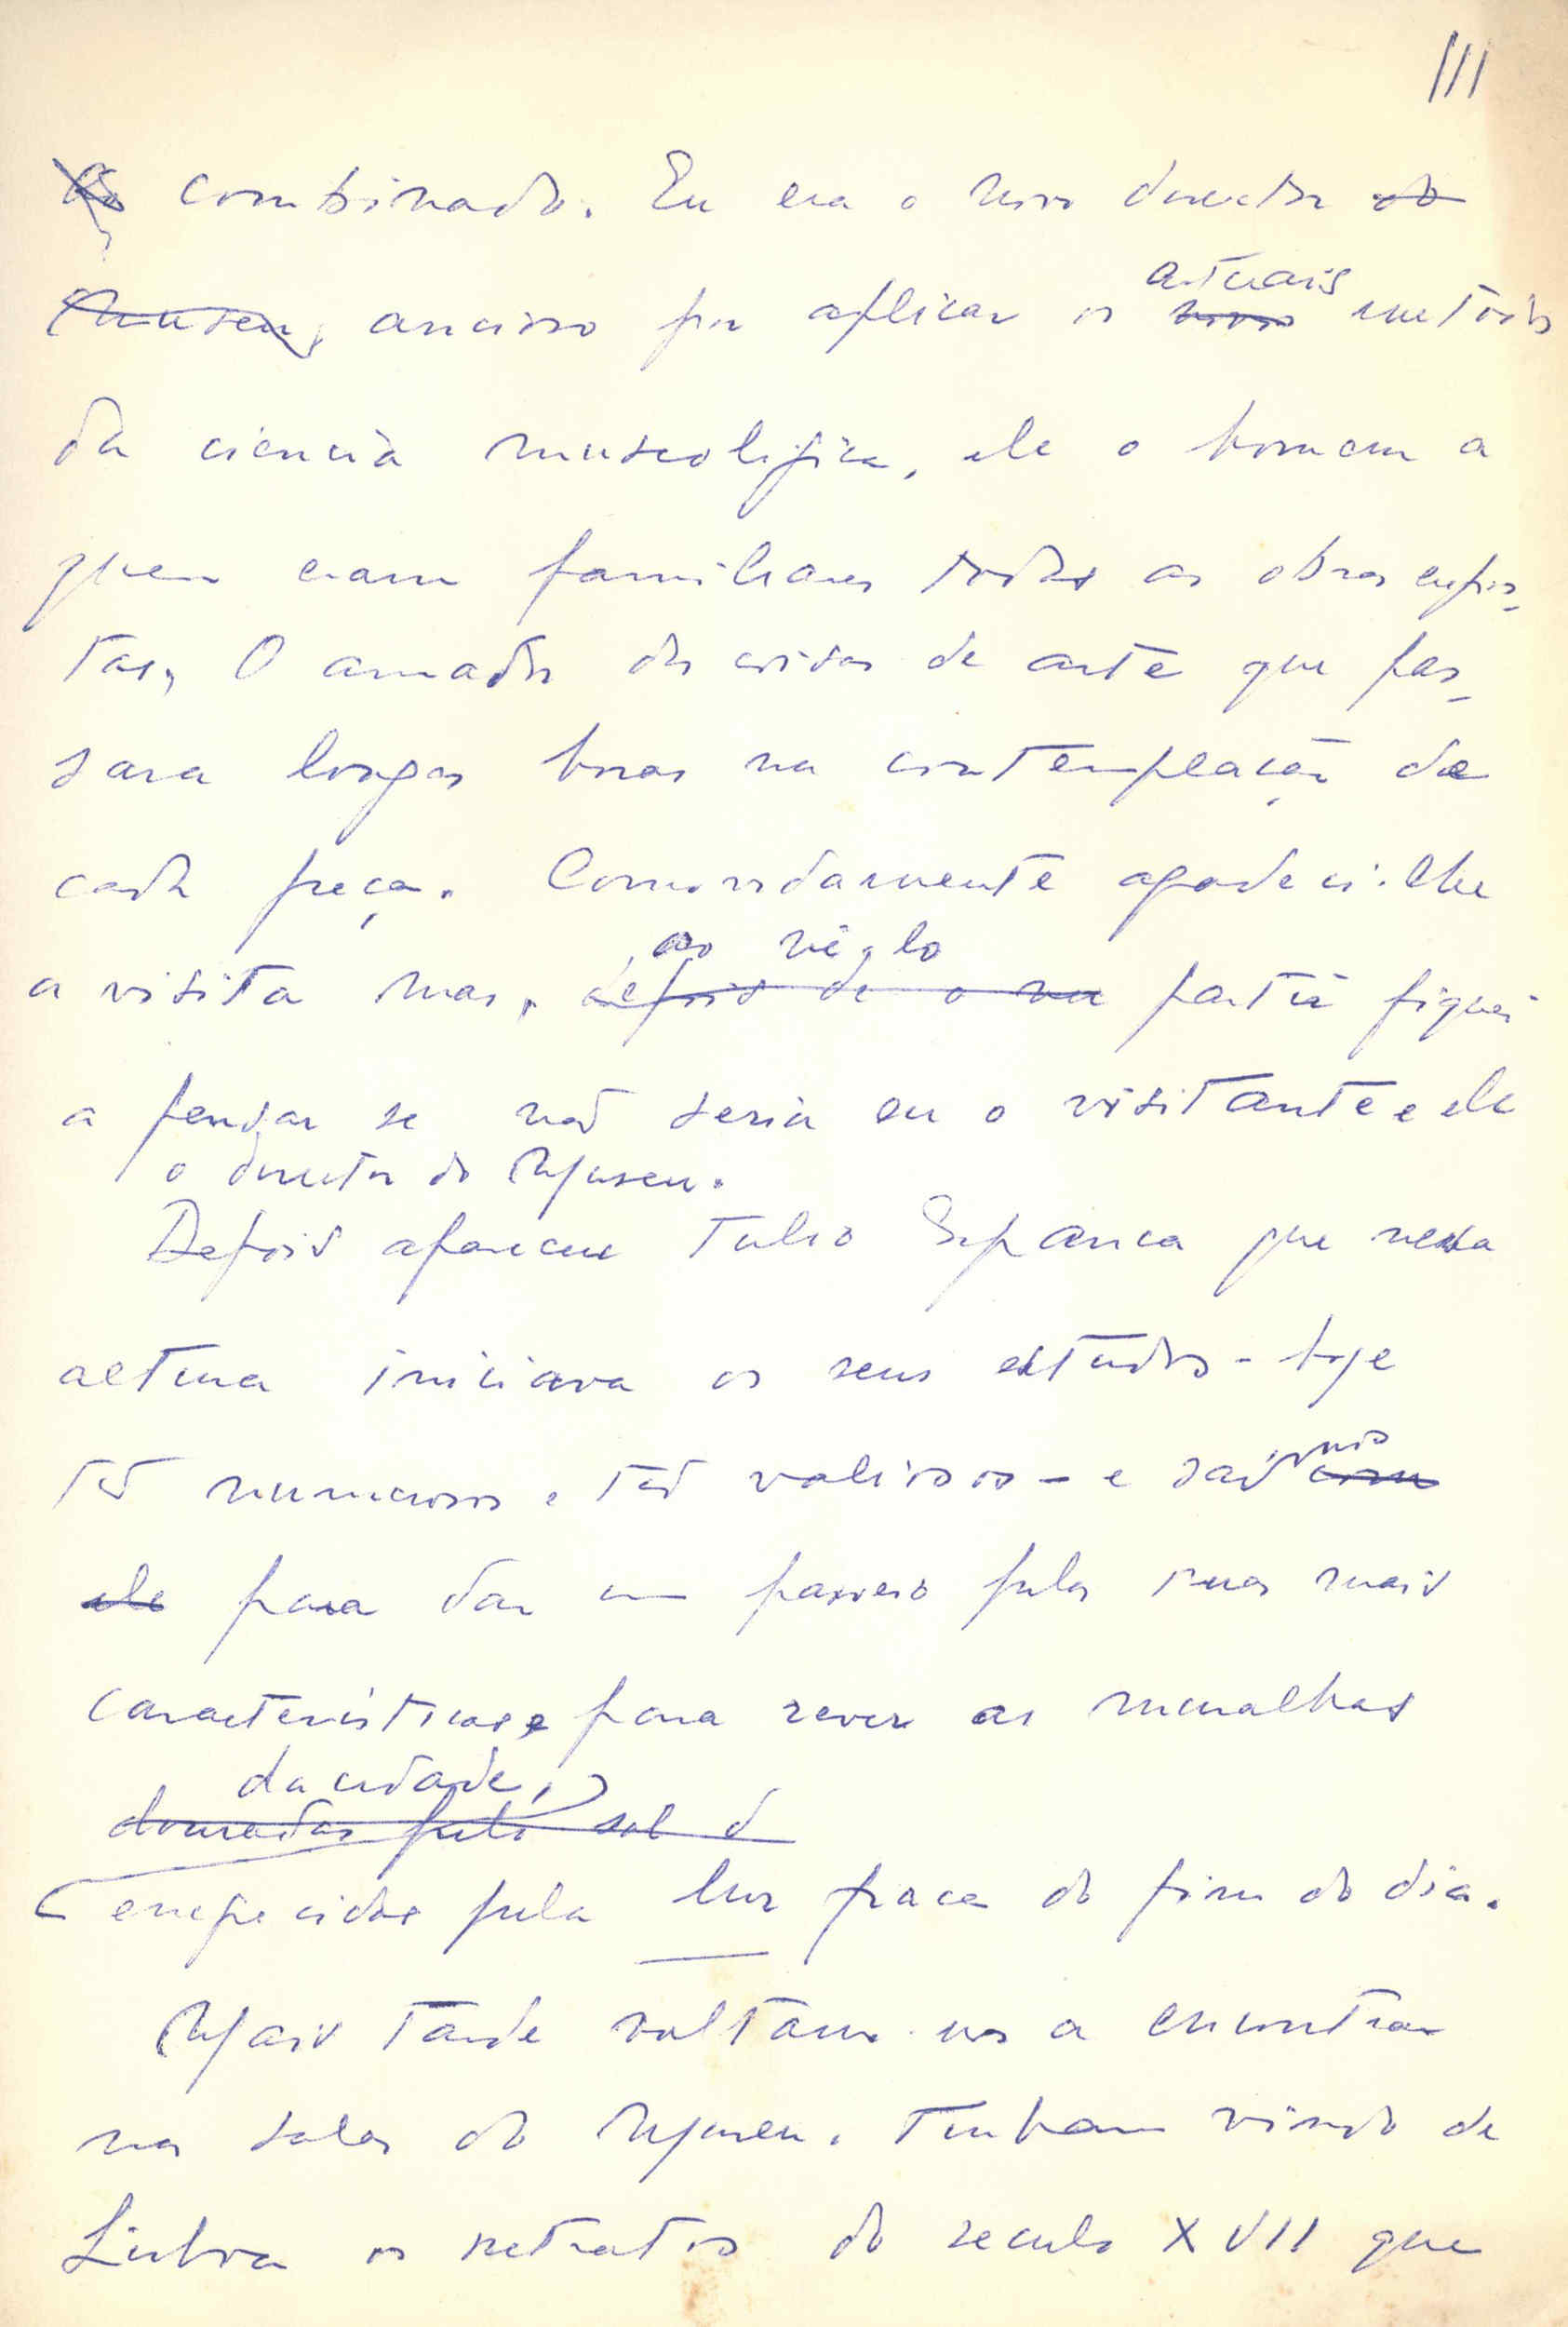 III
combinado. Eu era o novo director do
Museu, ancioso por aplicar os atuais novos metodos
da ciencia museologica, ele o homem a
quem eram familiares todas as obras expos-
tas, O amador das coisas de arte que pas-
sara longas horas na contemplação de
cada peça. Comovidamente agradeci-lhe
a visita mas, ao vê-lo depois de o ver partir fiquei
a pensar se não seria eu o visitante e ele
o director do Museu.
Depois apareceu Tulio Espanca que nessa
altura iniciava os seus estudos - hoje
tão numerosos e tão valiosos - e com
ele para dar um passeio pelas ruas mais
caracteristicas e para rever as muralhas
da cidade,
douradas pelo sol d
enegrecidas pela luz fraca do fim do dia.
Mais tarde voltamo-nos a encontrar
nas salas do Museu. Tinham vindo de
Lisboa os retratos do seculo XVII que